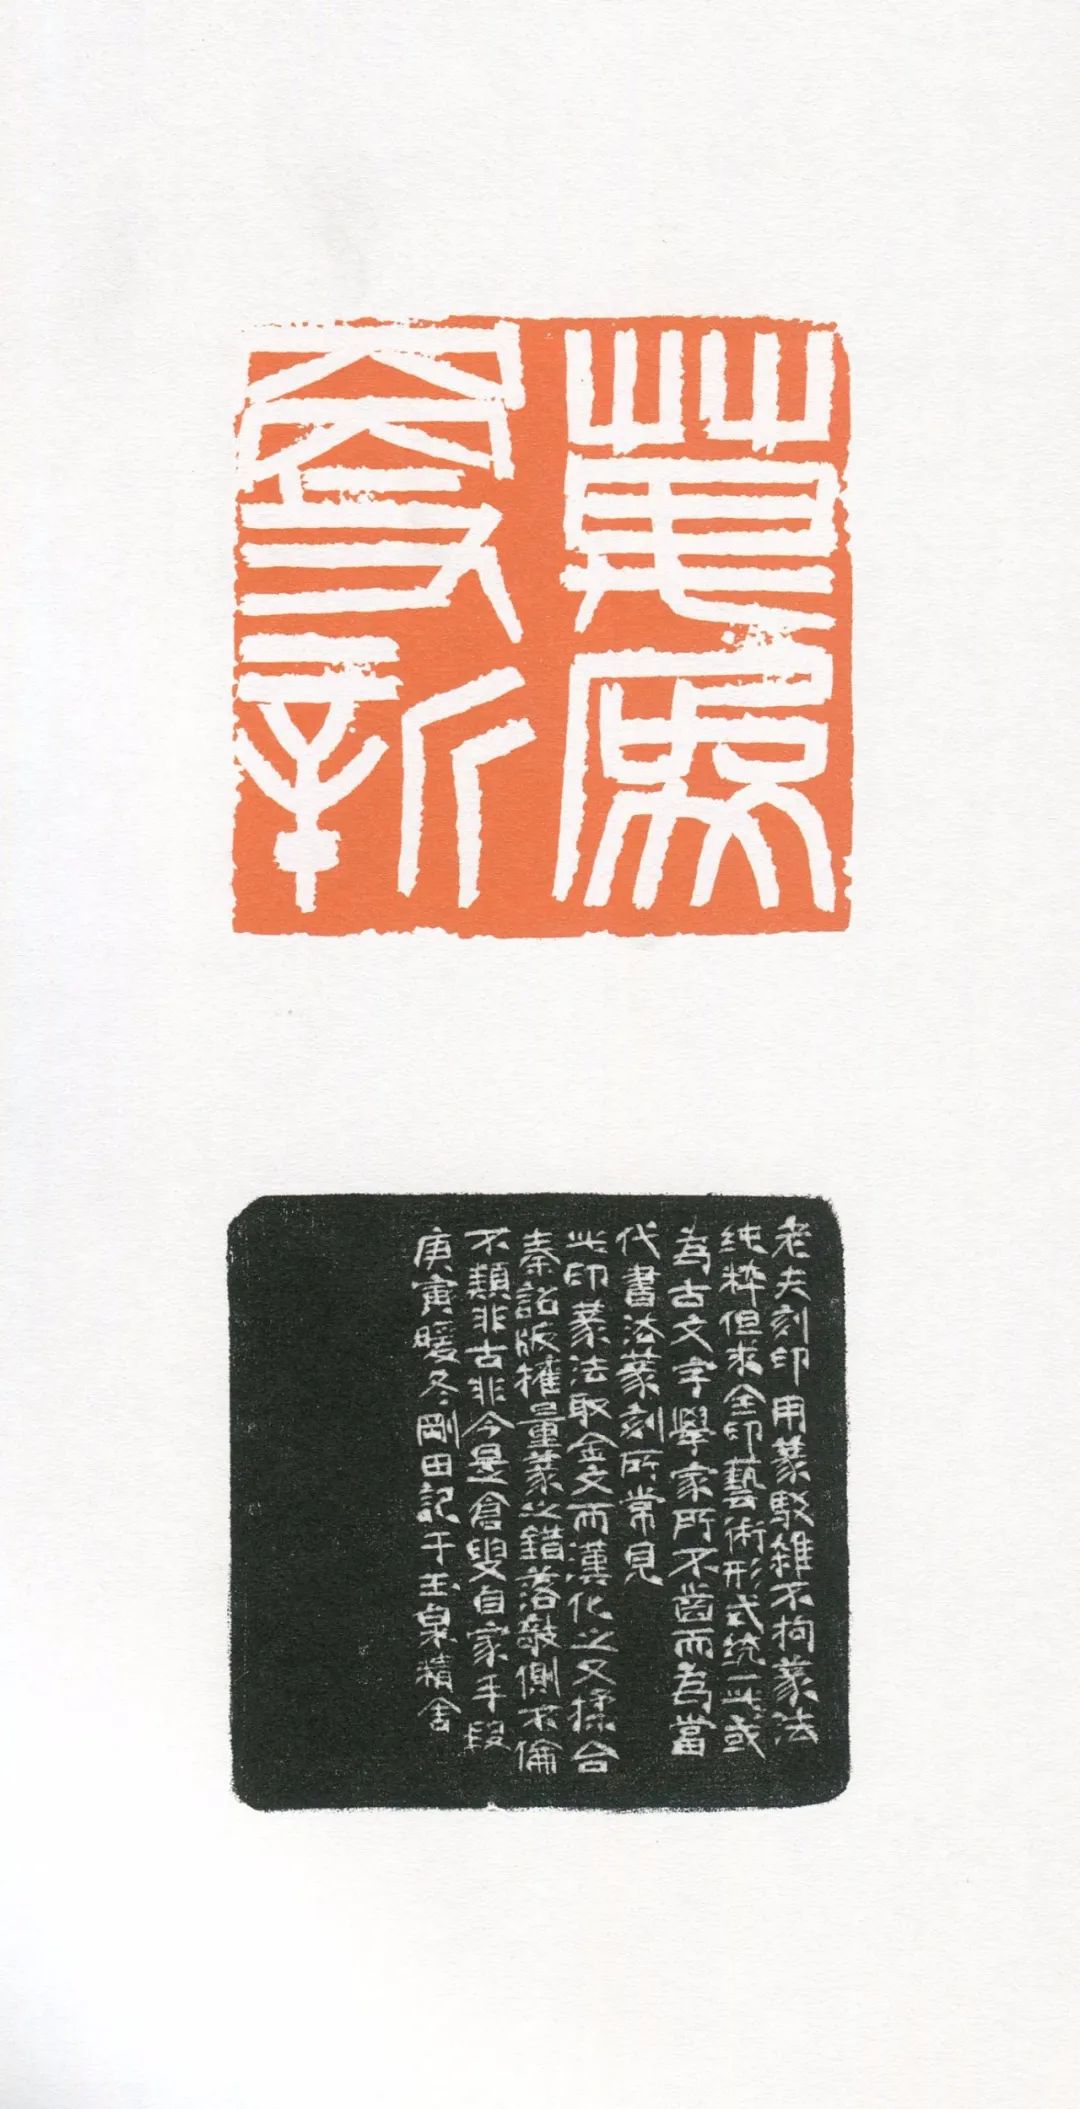 萬象
更新
老夫刻印用篆駁雜不拘篆法
纯粹但求全印藝術形式统一此或
為古文字學家所不齒而為當
代書法篆刻所常見
此印篆法取金文而漢化之又揉合
秦詔版權量篆之錯落敧側不倫
不類非古非今是倉叟自家手段
庚寅暖冬剛田記于玉泉精舍